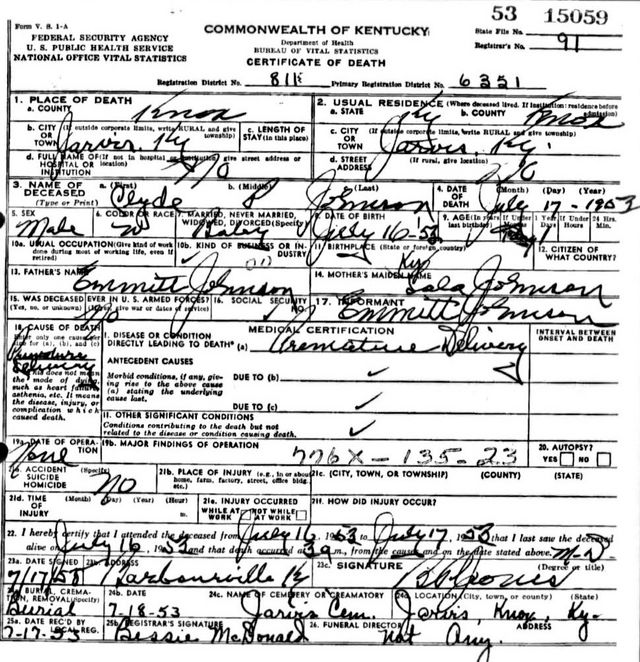 53 15059
Form V. S. 1-A
COMMONWEALTH OF KENTUCKY
State File No.
FEDERAL SECURITY AGENCY
Department of Health
Registrar's No. 91
U. S. PUBLIC HEALTH SERVICE
BUREAU OF VITAL STATISTICS
NATIONAL OFFICE VITAL STATISTICS
CERTIFICATE OF DEATH
Registration District No. 811 Primary Registration District No. 6351
1. PLACE OF DEATH
2. USUAL RESIDENCE (Where deceased lived. If institution: residence before admission)
a. COUNTY Knox
a. STATE Ky b. COUNTY Knox
b. CITY OR TOWN (If outside corporate limits, write RURAL and give township) Jarvis, Ky
c. LENGTH OF STAY (in this place)
c. CITY OR TOWN (If outside corporate limits, write RURAL and give township) Jarvis, Ky.
d. FULL NAME OF HOSPITAL OR INSTITUTION (If not in hospital or institution, give street address or location) No
d. STREET ADDRESS (If rural, give location)
3. NAME OF DECEASED (Type or Print)
a. (First) Clyde b. (Middle) c. (Last) Johnson
4. DATE OF DEATH (Month) (Day) (Year) July 17-1953
5. SEX Male
6. COLOR OR RACE W
7. MARRIED, NEVER MARRIED, WIDOWED, DIVORCED (Specify) Baby
8. DATE OF BIRTH July 16-53
9. AGE (In years last birthday) If Under 1 Year If Under 24 Hrs.
10a. USUAL OCCUPATION (Give kind of work done during most of working life, even if retired)
10b. KIND OF BUSINESS OR INDUSTRY
11. BIRTHPLACE (State or foreign country) Ky
12. CITIZEN OF WHAT COUNTRY?
13. FATHER'S NAME Emmitt Johnson
14. MOTHER'S MAIDEN NAME Johnson
15. WAS DECEASED EVER IN U. S. ARMED FORCES? (Yes, no, or unknown) (If yes, give war or dates of service) No
16. SOCIAL SECURITY NO.
17. INFORMANT Emmitt Johnson
18. CAUSE OF DEATH
MEDICAL CERTIFICATION
INTERVAL BETWEEN ONSET AND DEATH
Enter only one cause per line for (a), (b), and (c)
I. DISEASE OR CONDITION DIRECTLY LEADING TO DEATH* (a) Premature Delivery
Premature Delivery
*This does not mean the mode of dying, such as heart failure, asthenia, etc. It means the disease, injury, or complication which caused death.
ANTECEDENT CAUSES
Morbid conditions, if any, giving rise to the above cause (a) stating the underlying cause last.
DUE TO (b) ✓
DUE TO (c) ✓
II. OTHER SIGNIFICANT CONDITIONS
Conditions contributing to the death but not related to the disease or condition causing death. ✓
19a. DATE OF OPERATION None
19b. MAJOR FINDINGS OF OPERATION
776X-135-23
20. AUTOPSY? YES NO
21a. ACCIDENT SUICIDE HOMICIDE (Specify) No
21b. PLACE OF INJURY (e.g., in or about home, farm, factory, street, office bldg., etc.)
21c. (CITY, TOWN, OR TOWNSHIP) (COUNTY) (STATE)
21d. TIME OF INJURY (Month) (Day) (Year) (Hour) m.
21e. INJURY OCCURRED WHILE AT WORK NOT WHILE AT WORK
21f. HOW DID INJURY OCCUR?
22. I hereby certify that I attended the deceased from July 16, 1953 to July 17, 1953 that I last saw the deceased
alive on July 16, 1953 and that death occurred at 3 a m., from the causes and on the date stated above. M-D
23a. DATE SIGNED 7/17/53
23b. ADDRESS Barbourville Ky
23c. SIGNATURE (Degree or title)
24a. BURIAL, CREMATION, REMOVAL (Specify) Burial
24b. DATE 7-18-53
24c. NAME OF CEMETERY OR CREMATORY Jarvis Cem.
24d. LOCATION (City, town, or county) (State) Jarvis, Knox, Ky.
25a. DATE REC'D BY LOCAL REG. 7-17-53
25b. REGISTRAR'S SIGNATURE Bessie McDonald
26. FUNERAL DIRECTOR ADDRESS Not Any.